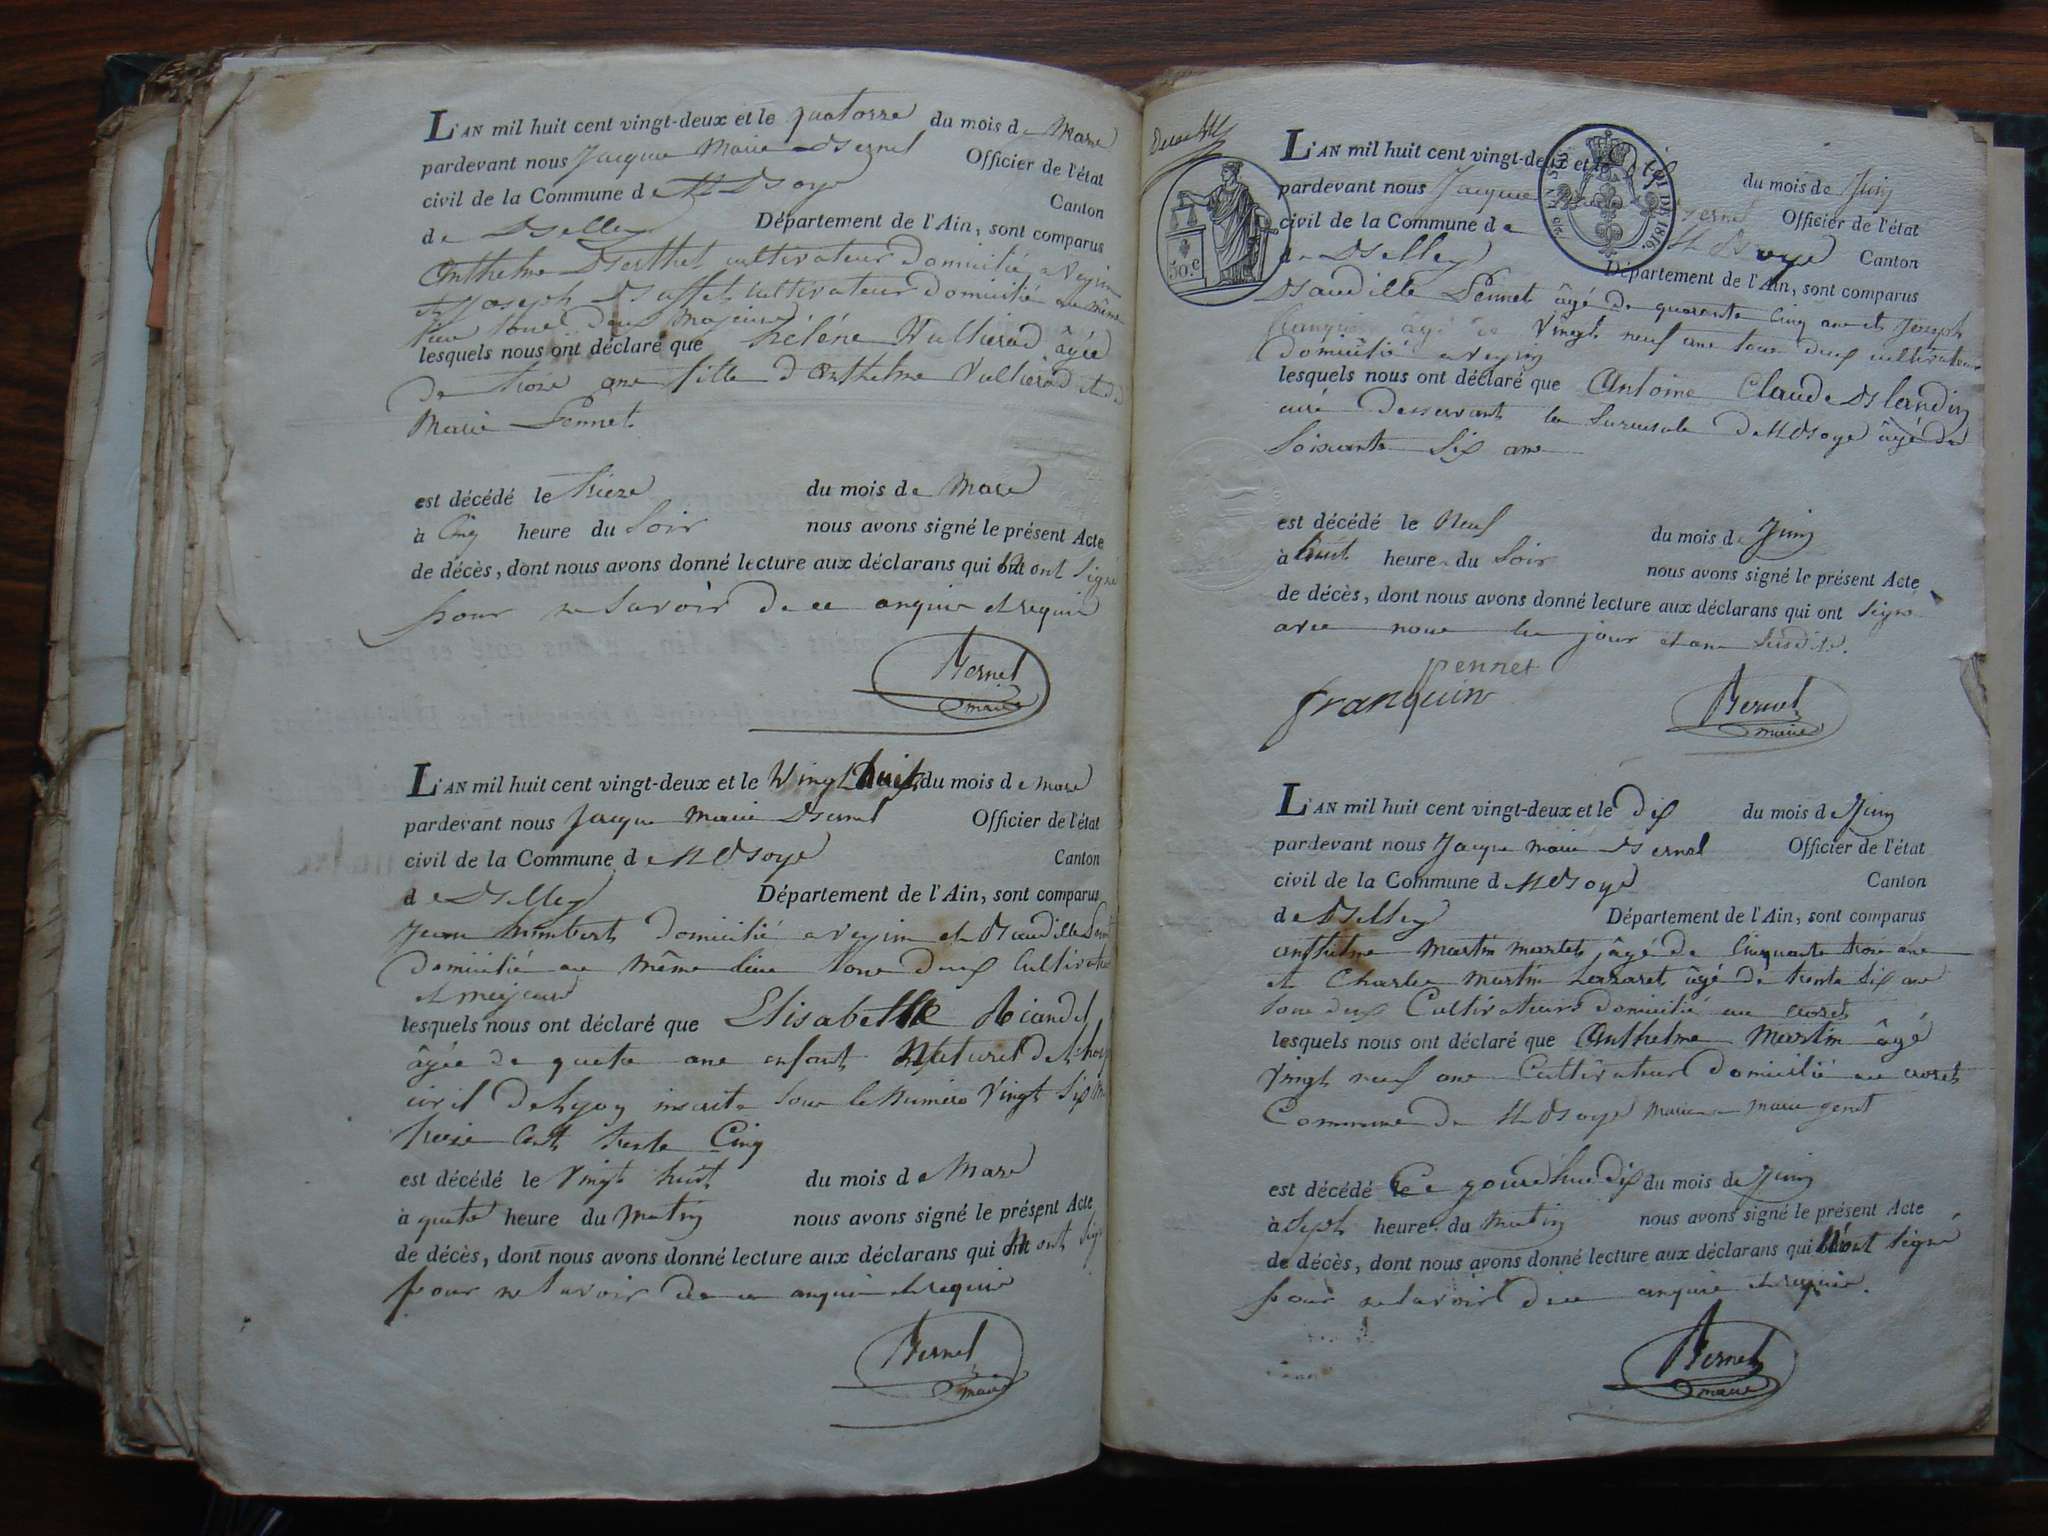 L'AN mil huit cent vingt-deux et le quatorze du mois de Mars
pardevant nous Jacque Marie Bernel Officier de l'état
civil de la Commune de St Boye Canton
de Belley Département de l'Ain, sont comparus
Anthelme Berthet cultivateur domicilié a Veyrin
et Joseph Buffet cultivateur domicilié au même
lieu tous deux Majeurs
lesquels nous ont déclaré que hélène Vullierod âgée
de troie ans fille d'Anthelme Vullierod et de
Marie Pennet
est décédé le treize du mois de Mars
à Cinq heure du Soir nous avons signé le présent Acte
de décès, dont nous avons donné lecture aux déclarans qui n'ont signé
pour ne savoir de ce enquie et requie
Bernel
maire
L'AN mil huit cent vingt-deux et le Vingt huit du mois de mars
pardevant nous Jacque Marie Bernel Officier de l'état
civil de la Commune de St Boye Canton
de Belley Département de l'Ain, sont comparus
Jean humbert domicilié a Veyrin et Baudille
domicilié au même lieu tous deux Cultivateur
et majeurs
lesquels nous ont déclaré que Elisabethe
âgée de quatre ans enfant Naturel de
civil de Lyon inscrite sous le Numéro Vingt Six
treize Cent trente Cinq
est décédé le Vingt huit du mois de Mars
à quatre heure du Matin nous avons signé le présent Acte
de décès, dont nous avons donné lecture aux déclarans qui n'ont signé
pour ne savoir de ce enquie et requie
Bernel
maire
50 c
LOI DE 1816.
L'AN mil huit cent vingt-deux et le dix du mois de Juin
pardevant nous Jacque Bernel Officier de l'état
civil de la Commune de St Boye Canton
de Belley Département de l'Ain, sont comparus
Baudille Pennet âgé de quarante Cinq ans et Joseph
franquin âgé de Vingt neuf ans tous deux cultivateur
domicilié a Veyrin
lesquels nous ont déclaré que Antoine Claude Blandin
curé desservant la Succursale de St Boye âgé de
Soixante Six ans
est décédé le Neuf du mois de Juin
à huit heure du Soir nous avons signé le présent Acte
de décès, dont nous avons donné lecture aux déclarans qui ont signé
avec nous les jour et an susdits.
pennet
franquin Bernel
maire
L'AN mil huit cent vingt-deux et le dix du mois de Juin
pardevant nous Jacque marie Bernel Officier de l'état
civil de la Commune de St Boye Canton
de Belley Département de l'Ain, sont comparus
anthelme Martin martet âgé de Cinquante trois ans
et Charles Martin Lazaret âgé de trente Six ans
tous deux Cultivateurs domicilié au crozet
lesquels nous ont déclaré que Anthelme Martin âgé
Vingt neuf ans Cultivateur domicilié au crozet
Commune de St Boye Marie a Marie genet
est décédé Ce jourdhui dix du mois de Juin
à Sept heure du Matin nous avons signé le présent Acte
de décès, dont nous avons donné lecture aux déclarans qui n'ont signé
pour ne savoir de ce enquie et requie.
Bernel
maire